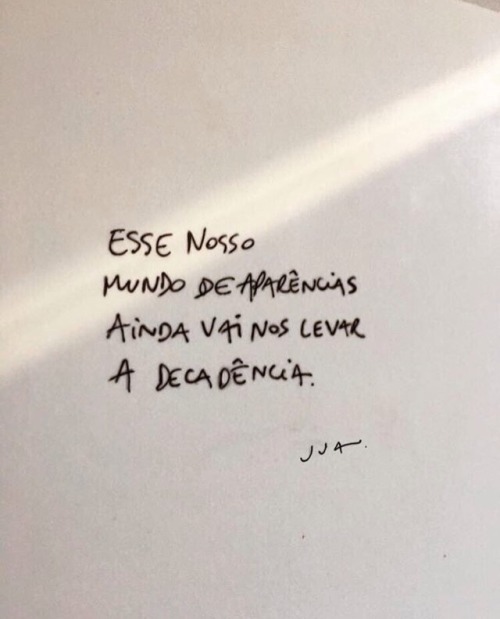 ESSE NOSSO
MUNDO DE APARÊNCIAS
AINDA VAI NOS LEVAR
A DECADÊNCIA.
JJA.